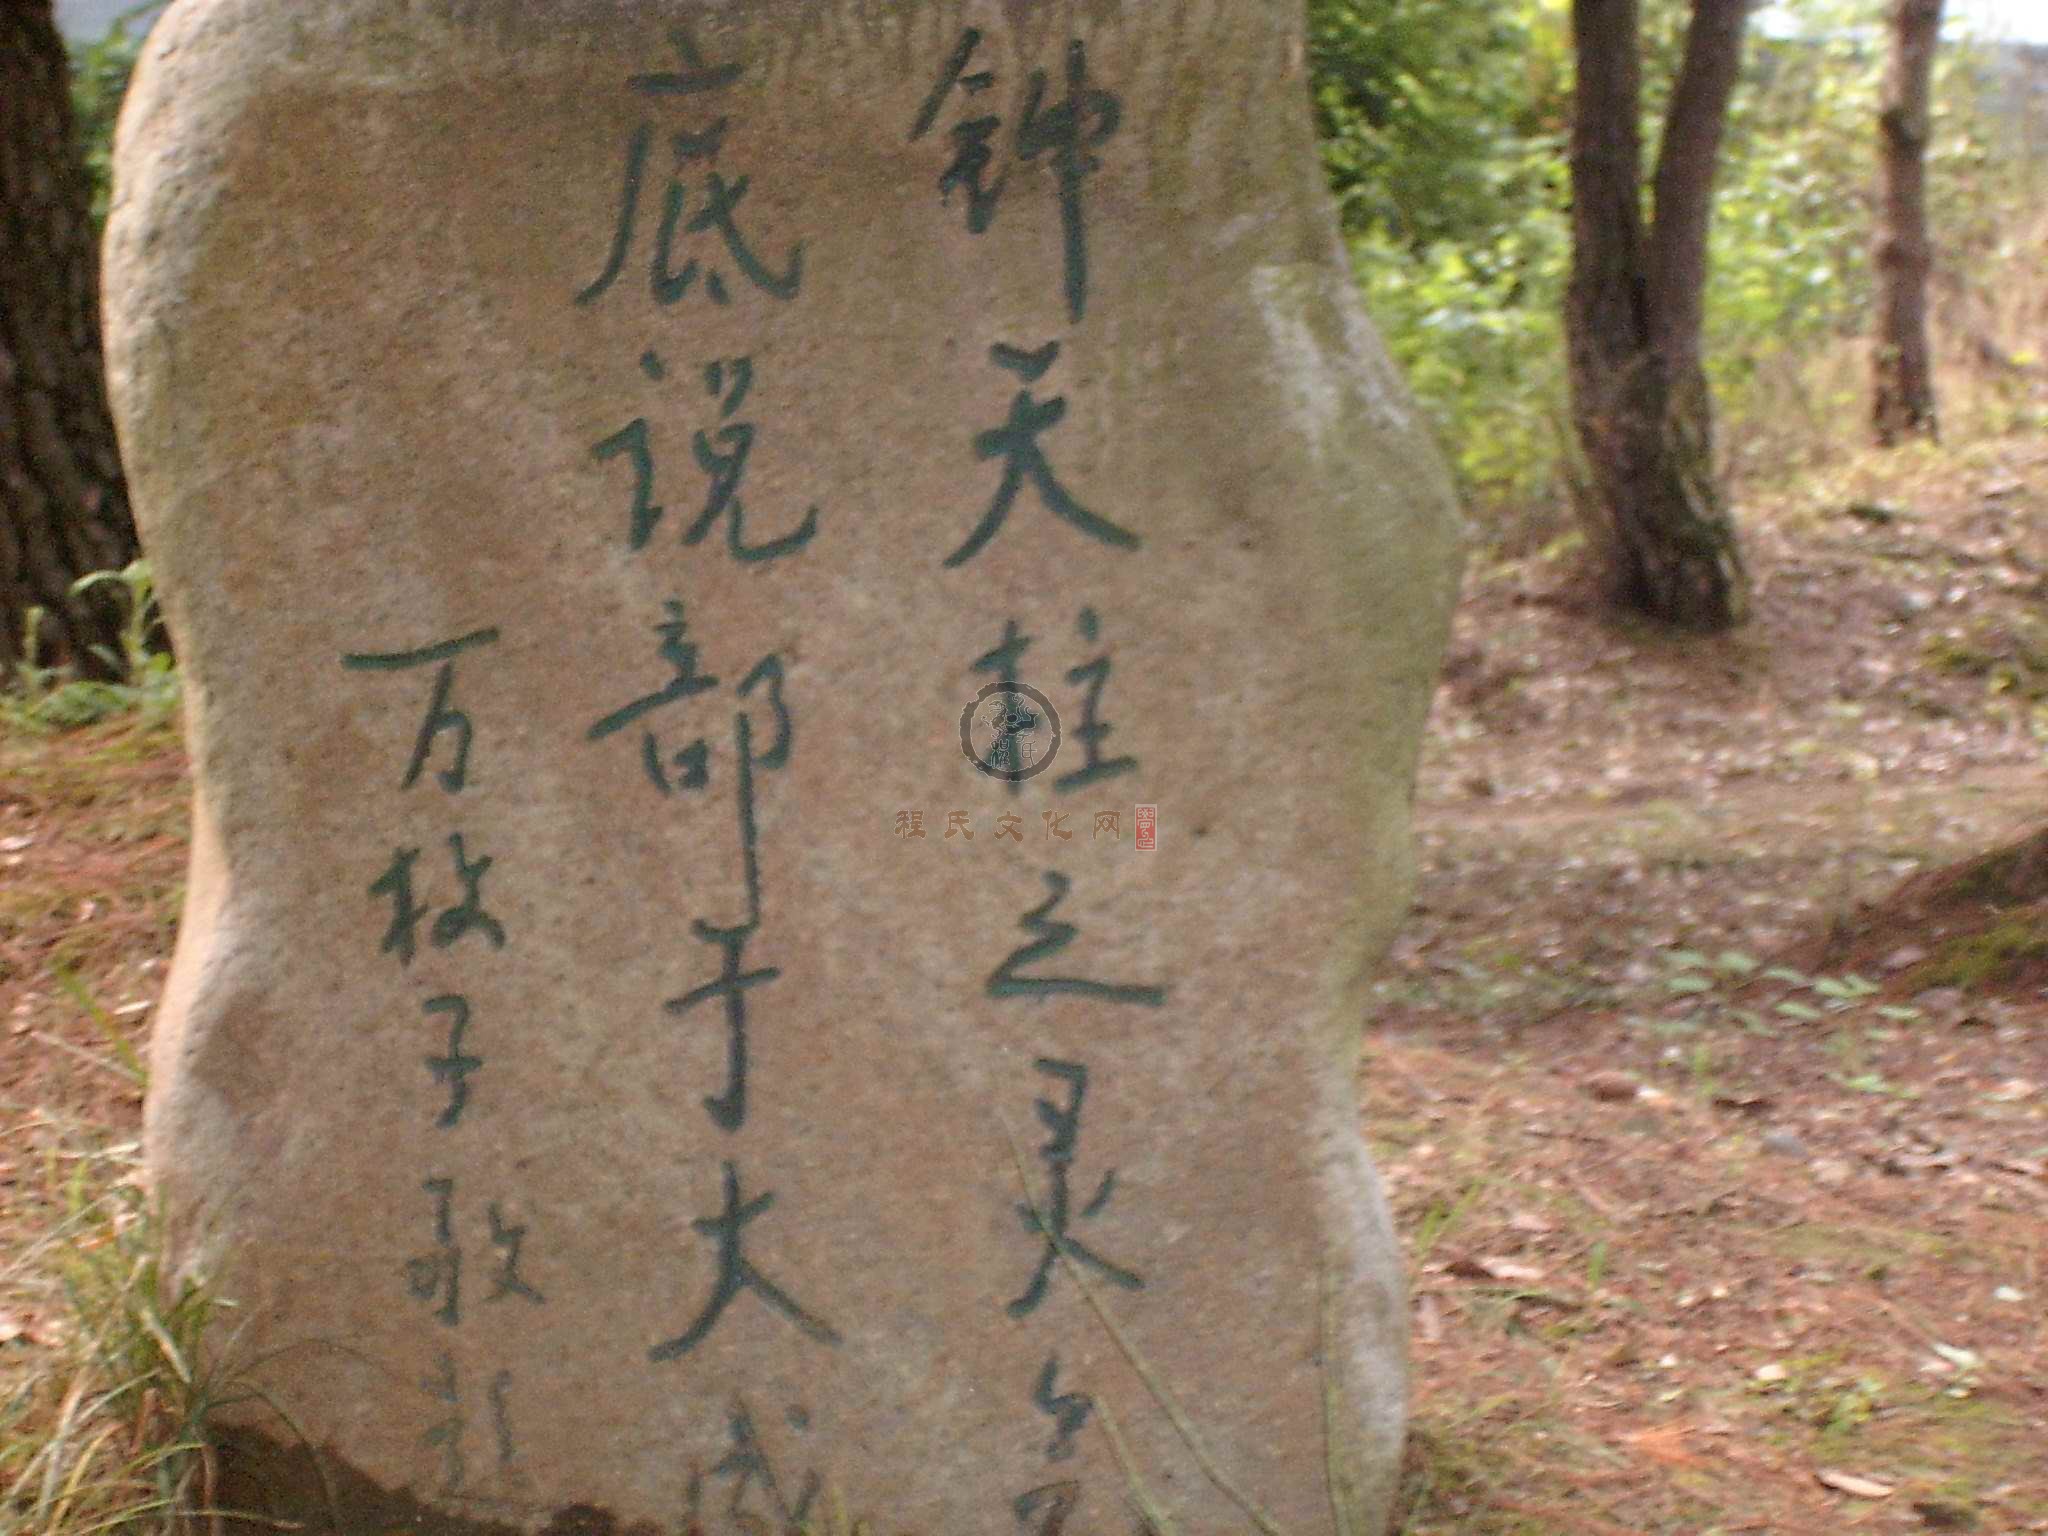 钟天柱之灵气
底说部于大成
万枚子敬题
程氏文化网